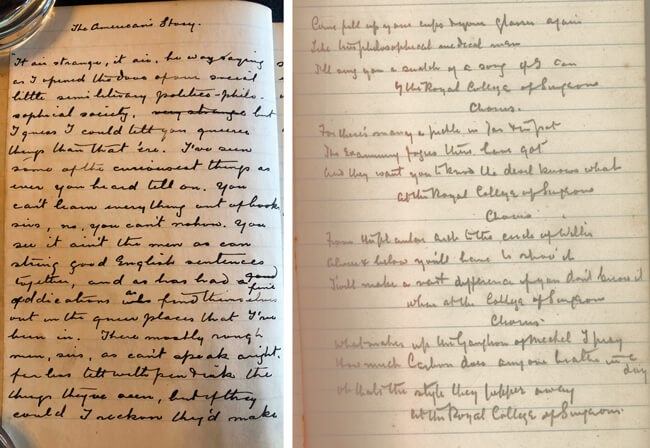 The American's Story.
"It air strange, it air, he was saying
as I opened the door of our social
little semi literary politico-philo-
sophical society, very strange but
I guess I could tell you queerer
things than that 'ere. I've seen
some of the curiousest things as
ever you heard tell on. You
can't learn everything out of books
sirs, no, you can't nohow. You
see it ain't the men as can
string good English sentences
together, and as has had a good
eddications as finds themselves
out in the queer places that I've
been in. There mostly rough
men, sirs, as can't speak aright.
far less tell with pen & ink the
things they've seen, but if they
could I reckon they'd make
Come fill up your cups & your glasses again
Like true philosophical medical men
I'll sing you a snatch of a song if I can
Of the Royal College of Surgeons
Chorus.
For there's many a pickle in jar & in pot
The Examining fogies there have got
And they want you to know the devil knows what
At the Royal College of Surgeons
Chorus.
From the plantar arch to the circle of Willis
Above & below you'll have to show it
T'will make a vast difference if you don't know it
When at the College of Surgeons
Chorus.
What makes up the Ganglion of Meckel I pray
How much Carbon does any one breathe in a day
oh that's the style they pepper away
At the Royal College of Surgeons.